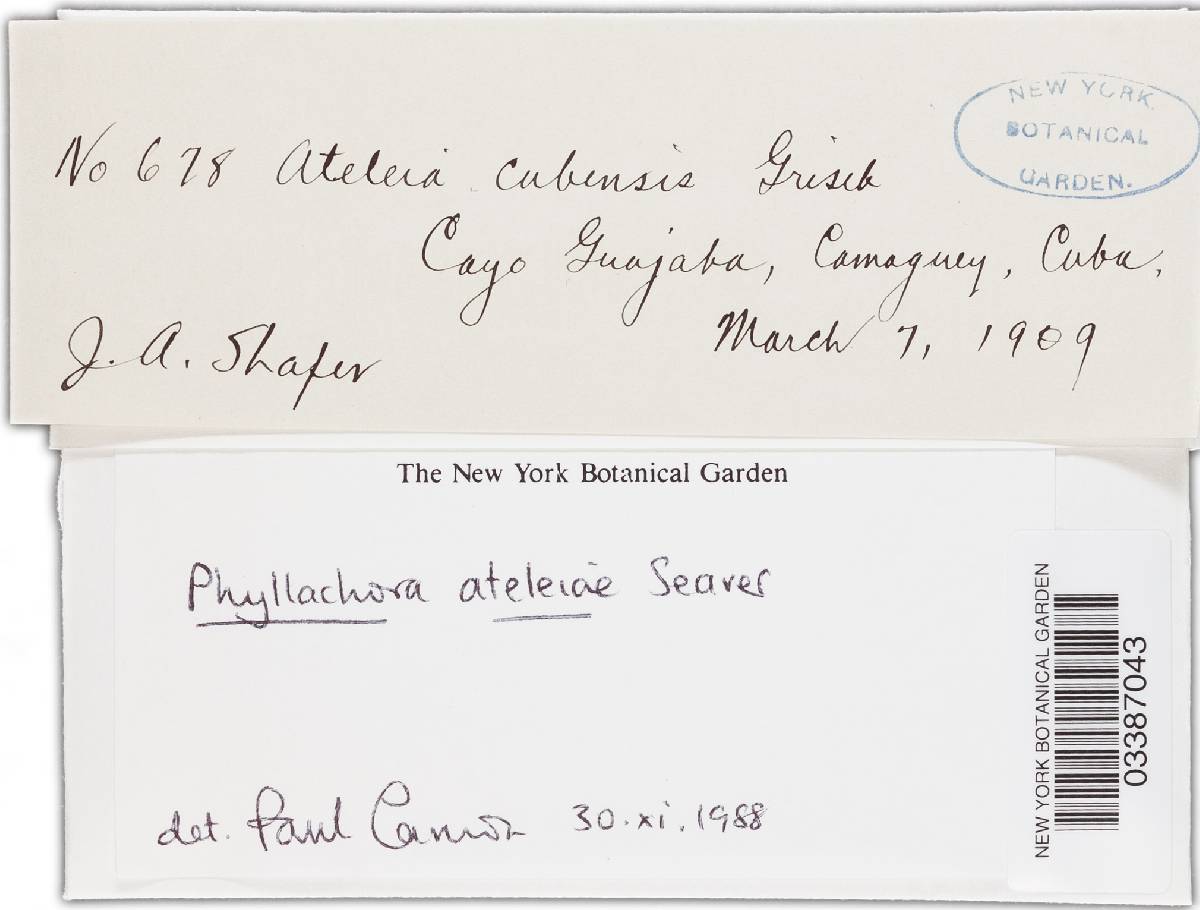 NEW YORK
BOTANICAL
GARDEN.
No 678 Ateleia cubensis Griseb
Cayo Guajaba, Camaguey, Cuba,
March 7, 1909
J. A. Shafer
The New York Botanical Garden
Phyllachora ateleiae Seaver
det. Paul Cannon 30.xi.1988
NEW YORK BOTANICAL GARDEN
03387043